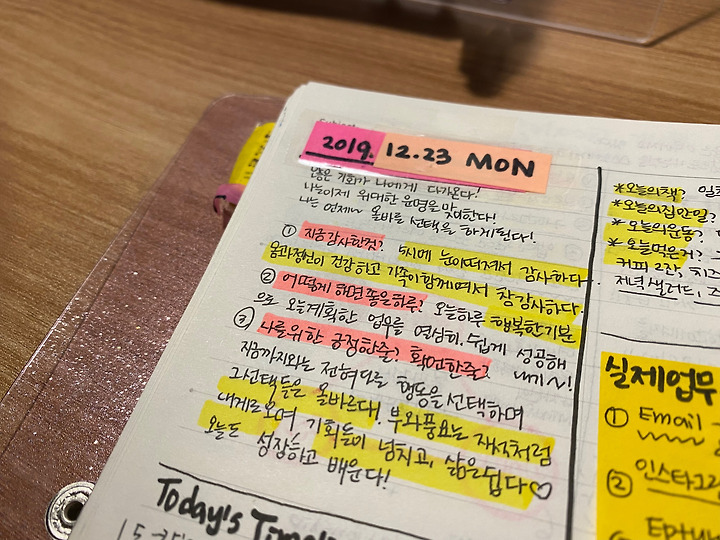 Subject
2019. 12.23 MON
좋은 기회가 나에게 다가온다!
나는 이제 위대한 운명을 맞이한다!
나는 언제나 올바른 선택을 하게된다!
① 지금감사한것? 5시에 눈이떠져서 감사하다.
몸과정신이 건강하고 가족이함께여서 참감사하다.
② 어떻게 하면좋은하루? 오늘하루 행복한기분
으로 오늘계획한 업무를 열심히, 쉽게 성공해
③ 나를위한 긍정한줄? 확언한줄?
지금까지와는 전혀다른 행동을선택하며
그선택들은 올바르다! 부와풍요는 자석처럼
내게로오며, 기회들이 넘치고, 삶은쉽다♡
오늘도 성장하고 배운다!
Today's
*오늘의책?
*오늘의집안일?
*오늘의운동?
*오늘먹은거?
커피 2잔,
저녁 샐러드,
실제업무
① Email
②